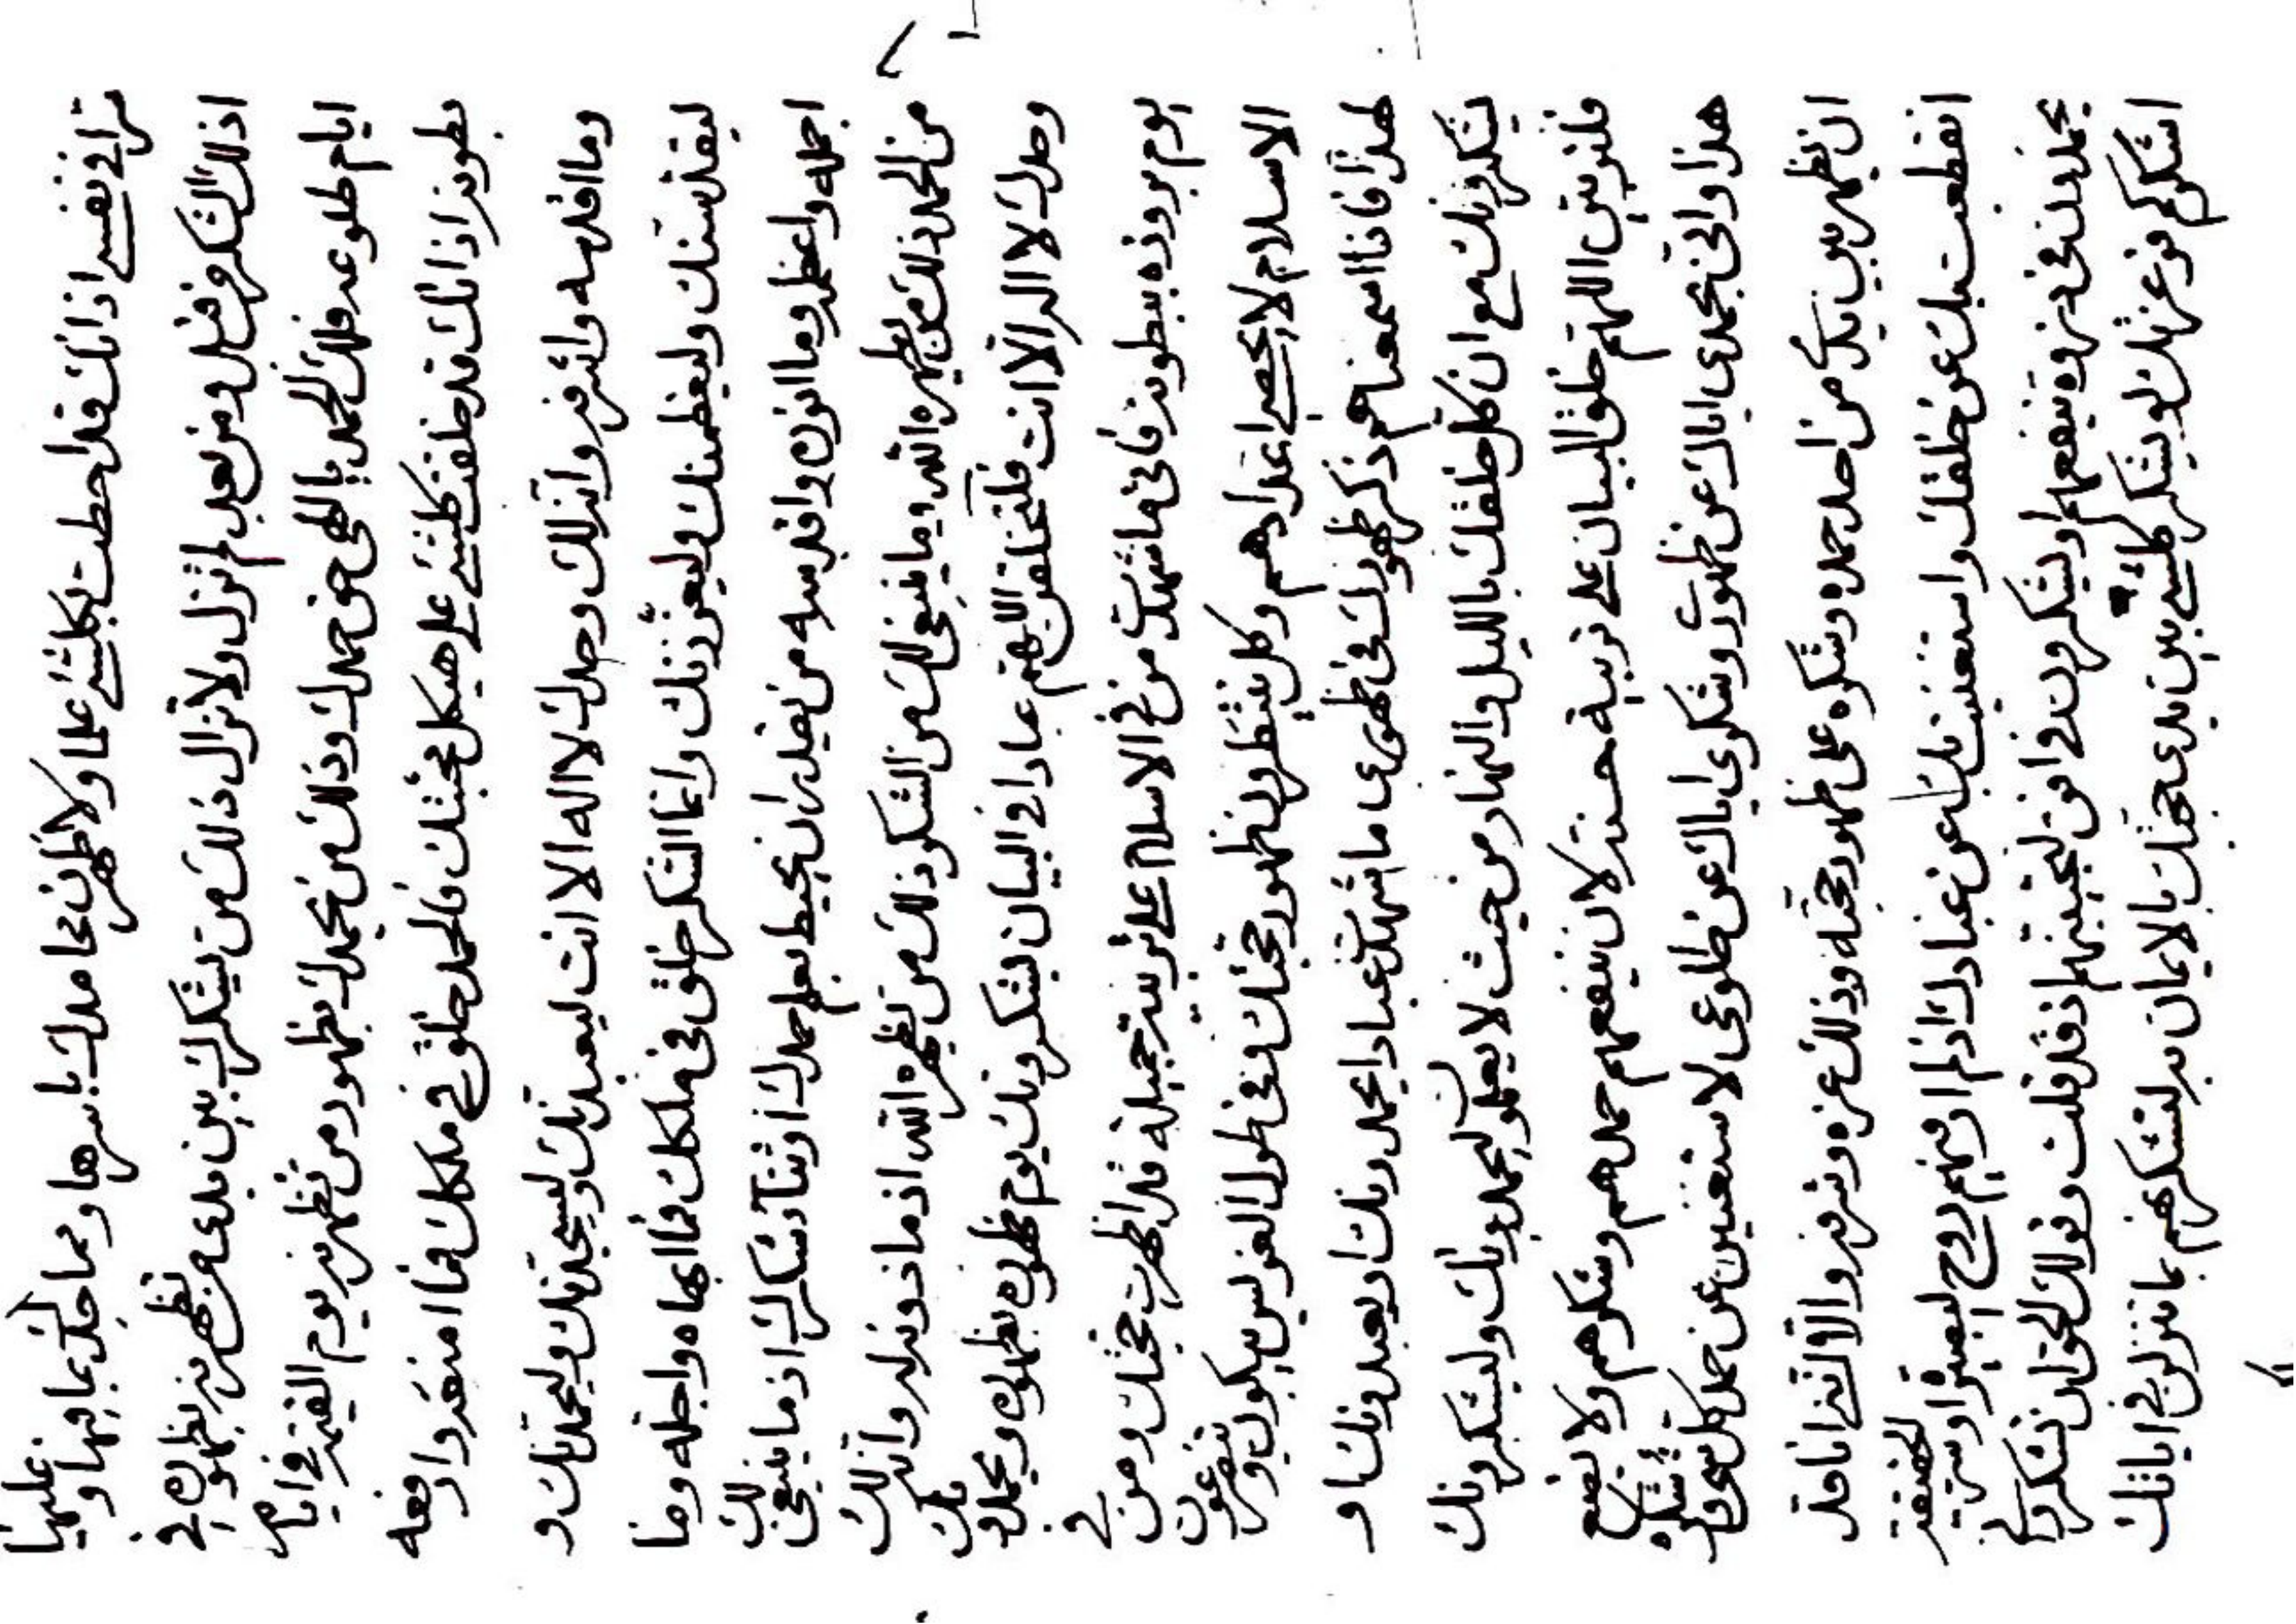 ترانی نفسی اذ انك قد احطت بكلشیء علما ولاظهرن محامدك باسرها ومما جلك بما فيها و عليها
اذ ذلك الشكر فی قبل ومن بعد لم تزل ولا تزال ذلك من يشكرك بين يدی من تظهرنه بظهوره فی
ايام طلوعه فلك الحمد يا الهی حق حمدك وذلك من يحمدك بظهور من تظهرنه يوم القيمة فی ايام
بطونه اذ انك قد خلقت كلشیء علی هيكل محبتك فالحمد خلق فی ملكك فما امنعه وارفعه
وما اقدسه واشرفه وانه لك وحدك لا اله الا انت ليعبدنك وليسجدنك وليحمدنك و
ليقدسنك وليعظمنك وليعززنك وانما الشكر خلق فی ملكك فما ابهاه واجله وما
اجمله واعظمه وما انوره واقدسه من يقدر ان يحيط بعلم حمدك او ثنآء شكرك اذ ما ينبغی لك
من الحمد ذلك من يظهره الله وما ينبغی لك من الشكر ذلك من تظهره الله اذ ما دونه له وانه لك
وحدك لا اله الا انت فلتخلقن اللهم عبادا فی البيان يشكرونك يوم ظهوره بظهوره ويحمدونك
يوم بروزه ببطونه فانی ما شهدت من فی الاسلام علی تربية جميلة قد اظهرت حجتك ومن فی
الاسلام لا يحصی اعدادهم وكل ينتظرون ظهور حجتك وفی طول يبكون ويتضرعون
لهذا فاذا اسمعناهم ذكر ظهورك فی ظهوری ما شهدت عبادا يحمدونك او يعبدونك او
يشكرونك مع ان كل خلقك بالليل والنهار من حيث لا يعلمون ليحمدونك وليشكرونك
فلتربين اللهم خلق البيان علی تربية حسنة لان ينفعهم حمدهم وشكرهم ولا يضيع
هذا وانی بحمدی اياك عن ظهوری وشكری اياك عن طلوعی لاستغنين عن حمد كلشیء وشكره
ان تظهر بين يدی من احد حمده وشكره علی ظهور حجته وذلك عزه وشرفه والا انا قد
انقطعت بك عن خلقك واستغنيت بك عن عبادك اذ لم ار فيهم روح
بحمدك فی ذروة تنفعهم او يشكرون فی افق لتجيبنهم اذ قد قلت وقولك الحق ان تشكروا
اشكركم فوعزتك لو يشكر كلشیء بين يدی حجتك بالايمان به لتشكرنهم بما تنزلن فی اياتك